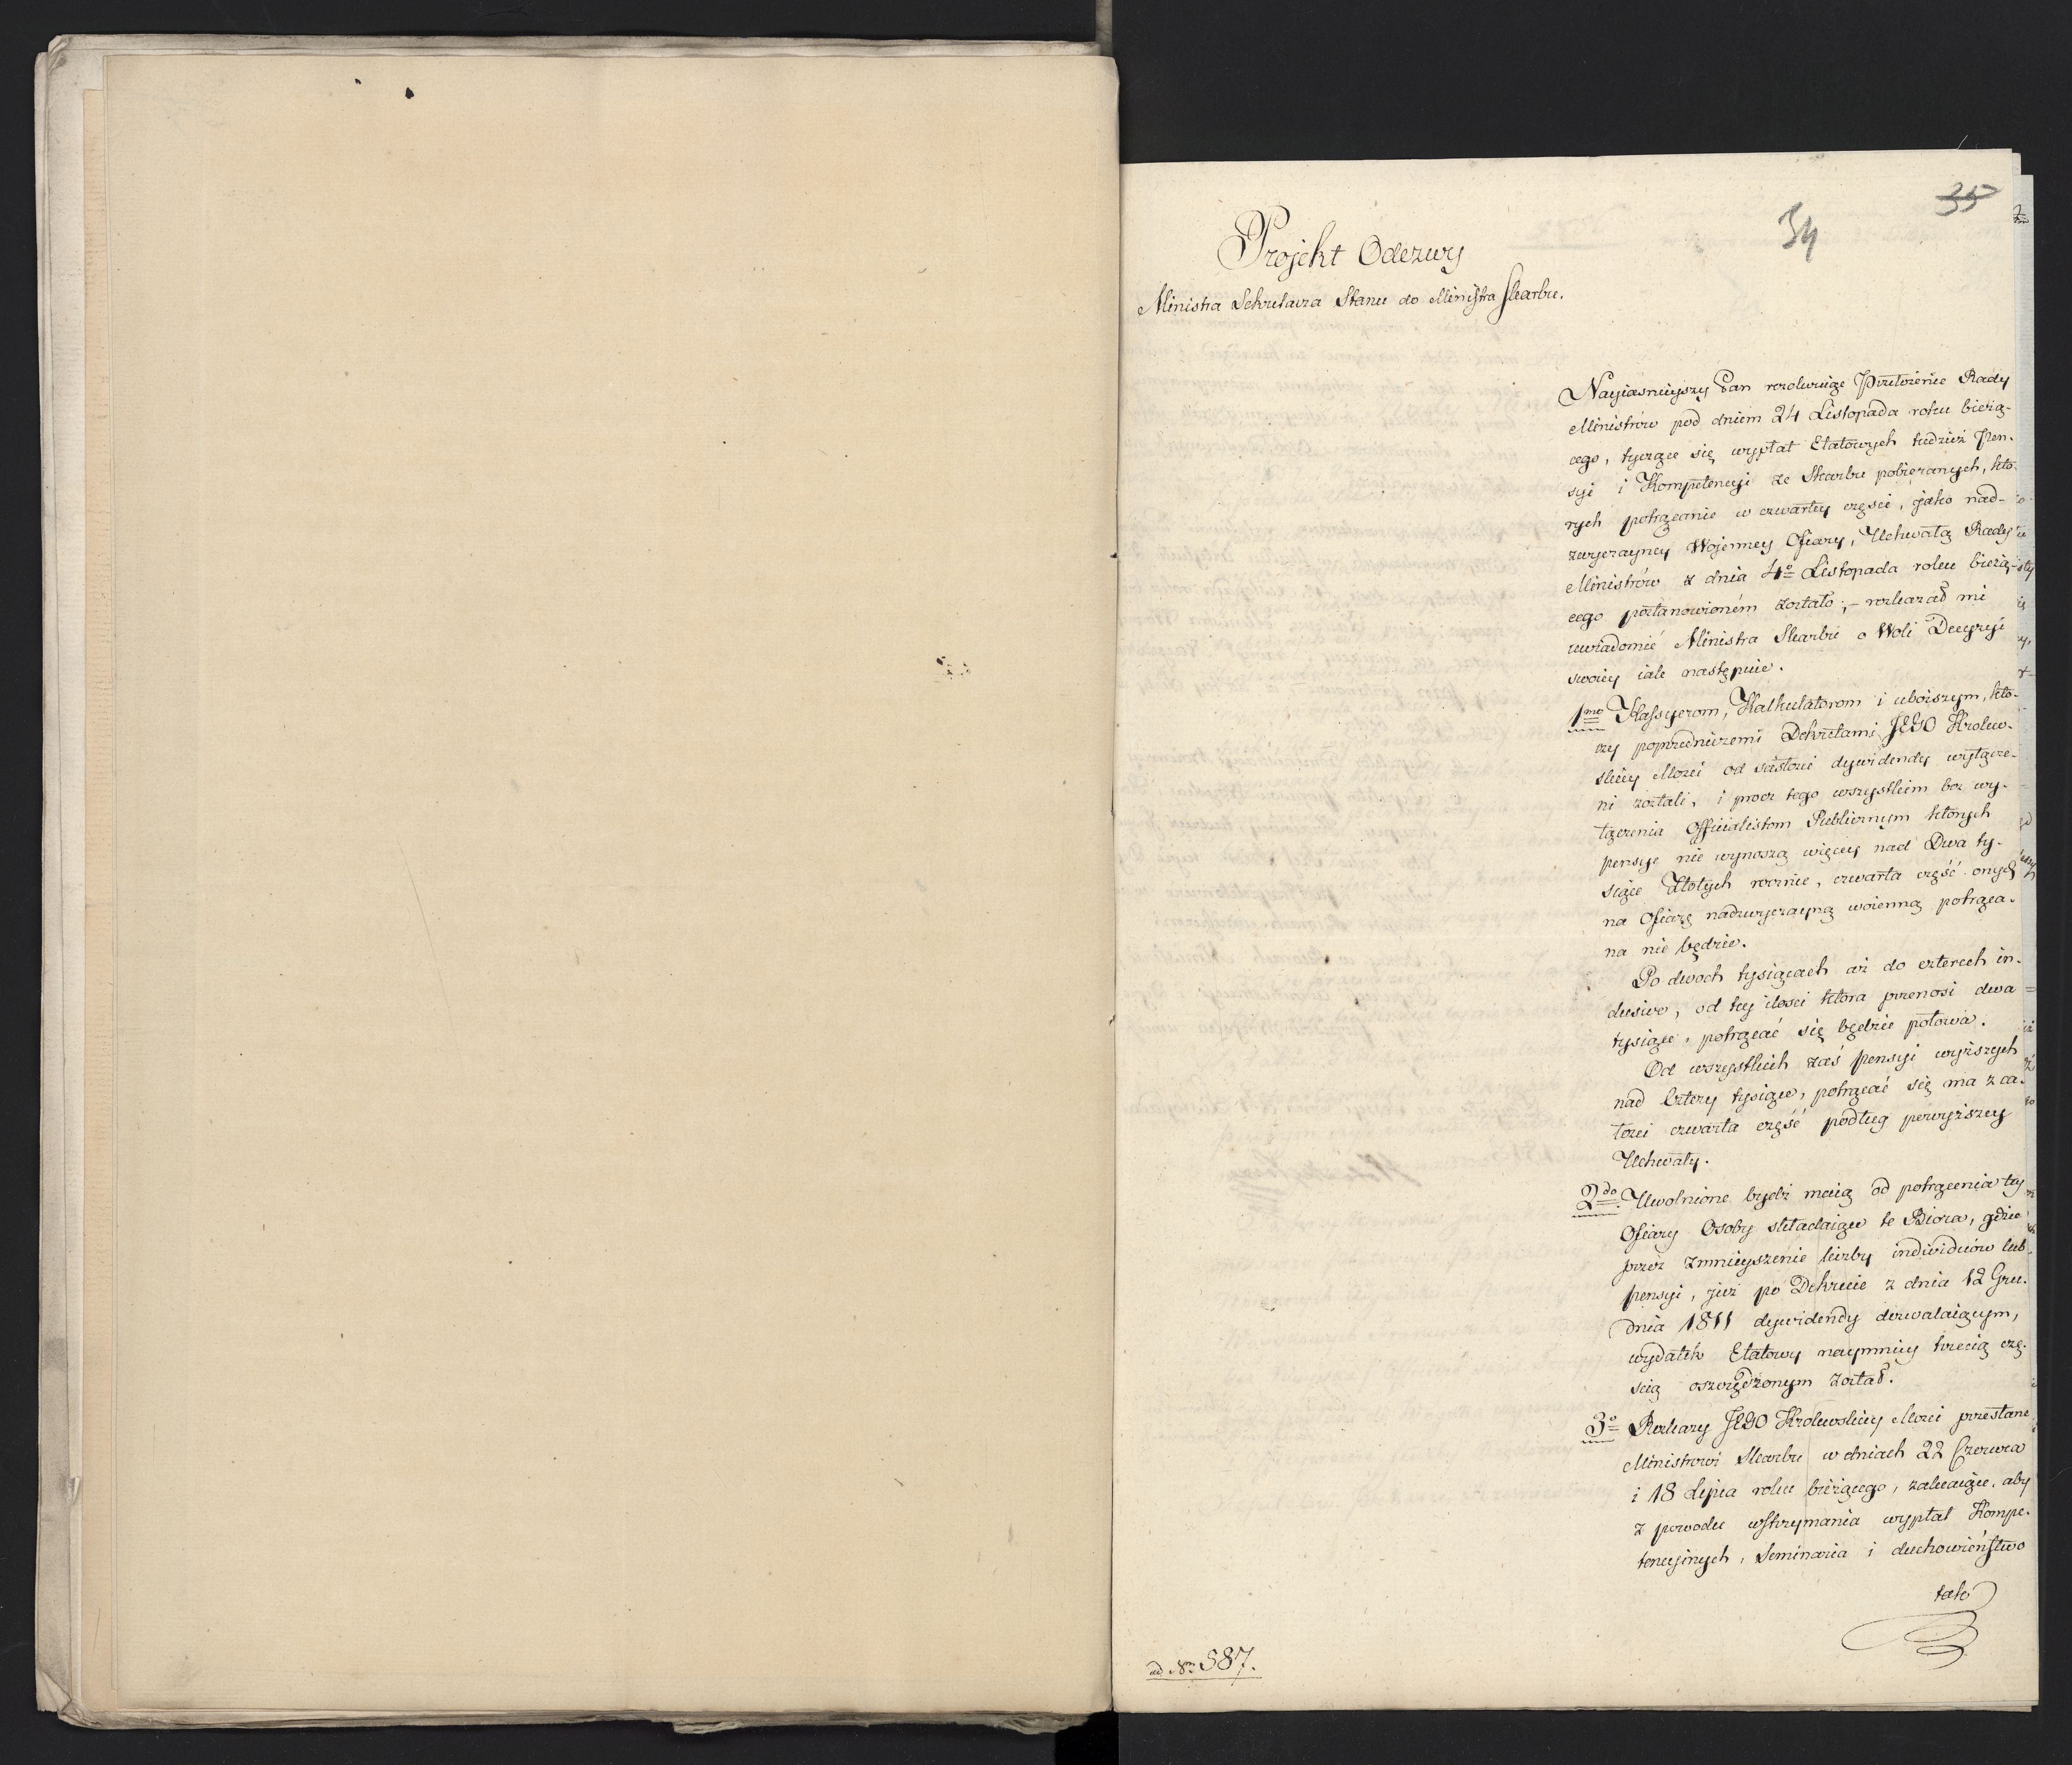 35
34
Projekt Odezwy
Ministra Sekretarza Stanu do Ministra Skarbu.
Nayiasnieyszy Pan rezolwuiąc Przełożenie Rady
Ministrów pod dniem 24 Listopada roku bieżą-
cego, tyczące się wypłat Etatowych tudzież Pen-
syi i Kompetencyi ze Skarbu pobieranych, któ-
rych potrącanie w czwartey części, jako nad-
zwyczayney Wojenney Ofiary, Uchwałą Rady
Ministrów z dnia 4º Listopada roku bieżą-
cego postanowioném zostało; – rozkazał mi
uwiadomić Ministra Skarbu o Woli Decyzyi
swoiey iak następuie.
1mo Kassyerom, Kalkulatorom i uboższym, któ-
rzy poprzedniczemi Dekretami JEGO Krolew-
skiey Mości od ścisłości dywidendy wyłącze-
ni zostali, i procz tego wszystkim bez wy-
łączenia Officialistom Publicznym których
pensye nie wynoszą więcey nad Dwa ty-
siące Złotych rocznie, czwarta część onych
na Ofiarę nadzwyczayną woienną potrąca-
na nie będzie.
Po dwoch tysiącach aż do czterech in-
clusive, od tey ilości która przenosi dwa
tysiące, potrącać się będzie połowa.
Od wszystkich zaś pensyi wyższych
nad Cztery tysiące, potrącać się ma z ca-
łości czwarta część podług powyższey
Uchwały.
2do Uwolnione bydź maią od potrącenia tey
Ofiary Osoby składaiące te Biora, gdzie
przez zmnieyszenie liczby individuów lub
pensyi, już po Dekrecie z dnia 12 Gru-
dnia 1811 dywidendy dozwalaiącym,
wydatek Etatowy naymniey trzecią czę-
ścią oszczędzonym został.
3º Rozkazy JEGO Krolewskiey Mości przesłane
Ministrowi Skarbu w dniach 22 Czerwca
i 18 Lipca roku bieżącego, zalecaiące, aby
z powodu wstrzymania wypłat Kompe-
tencyinych, Seminaria i duchowieństwo
tak
ad Nrm 587.